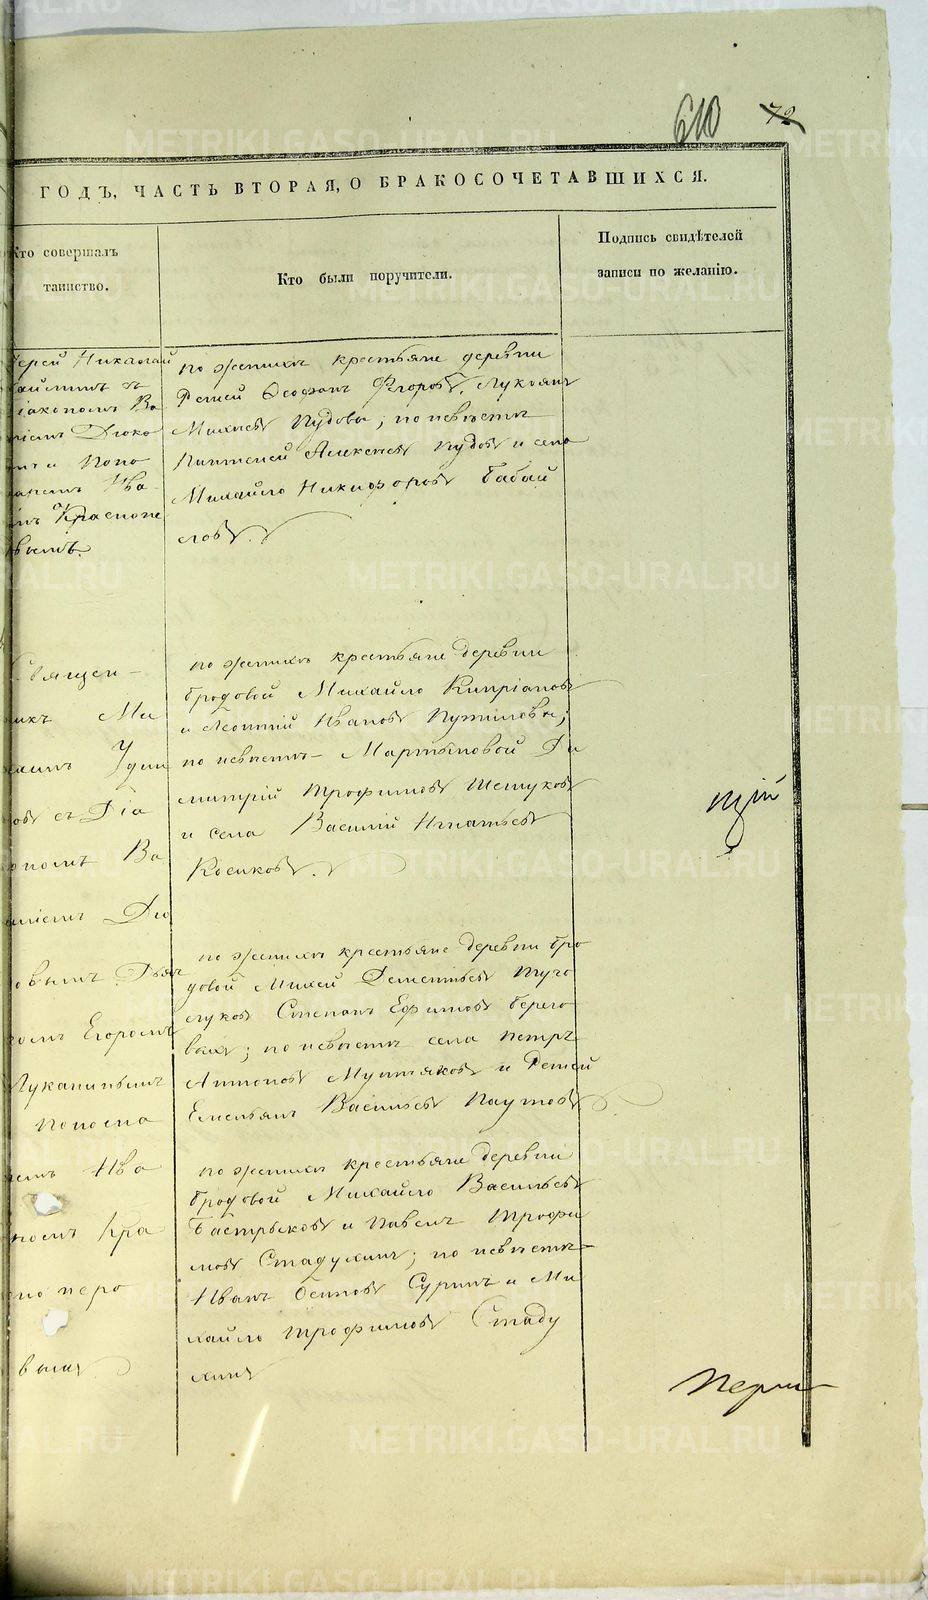 610 72
ГОДЪ, ЧАСТЬ ВТОРАЯ, О БРАКОСОЧЕТАВШИХСЯ.
Кто совершалъ
таинство.
Кто были поручители.
Подпись свидѣтелей
записи по желанію.
Іерей Николай
діакономъ Ва
Дюко
и Поно
Ива
Краснопе
вымъ.
по женихѣ крестьяне деревни
Ретей Феофанъ Флоровъ, Лукоянъ
Пудовы; по невѣстѣ
Пантелей Алексѣевъ Пудовъ и села
Михайло Никифоровъ Бабай
ловъ.
Священ-
никъ Ми
Удин
въ съ Діа
кономъ Ва
Дю
ковымъ Дьяч
комъ Егоромъ
Луканинымъ
Понома
ремъ Ива
номъ Кра
сно перо
вымъ
по женихѣ крестьяне деревни
бродовой Михайло Кипріановъ
и Леонтій Ивановъ Путиловы;
по невѣстѣ - Мартыновой Ди
митрій Трофимовъ Шешуковъ
и села Василій Игнатьевъ
Косиковъ.
по женихѣ крестьяне деревни бро
довой Михей Дементьевъ Туго
луковъ Степанъ Ефимовъ берего
выхъ; по невѣстѣ села Петръ
Антоновъ Мунтяковъ и Ретей
Емельянъ Васильевъ Паутовъ
по женихѣ крестьяне деревни
бродовой Михайло Васильевъ
Бастрыковъ и Павелъ Трофи
мовъ Стадухинъ; по невѣстѣ-
Иванъ Осиповъ Суринъ и Ми
хайло Трофимовъ Стаду
хинъ